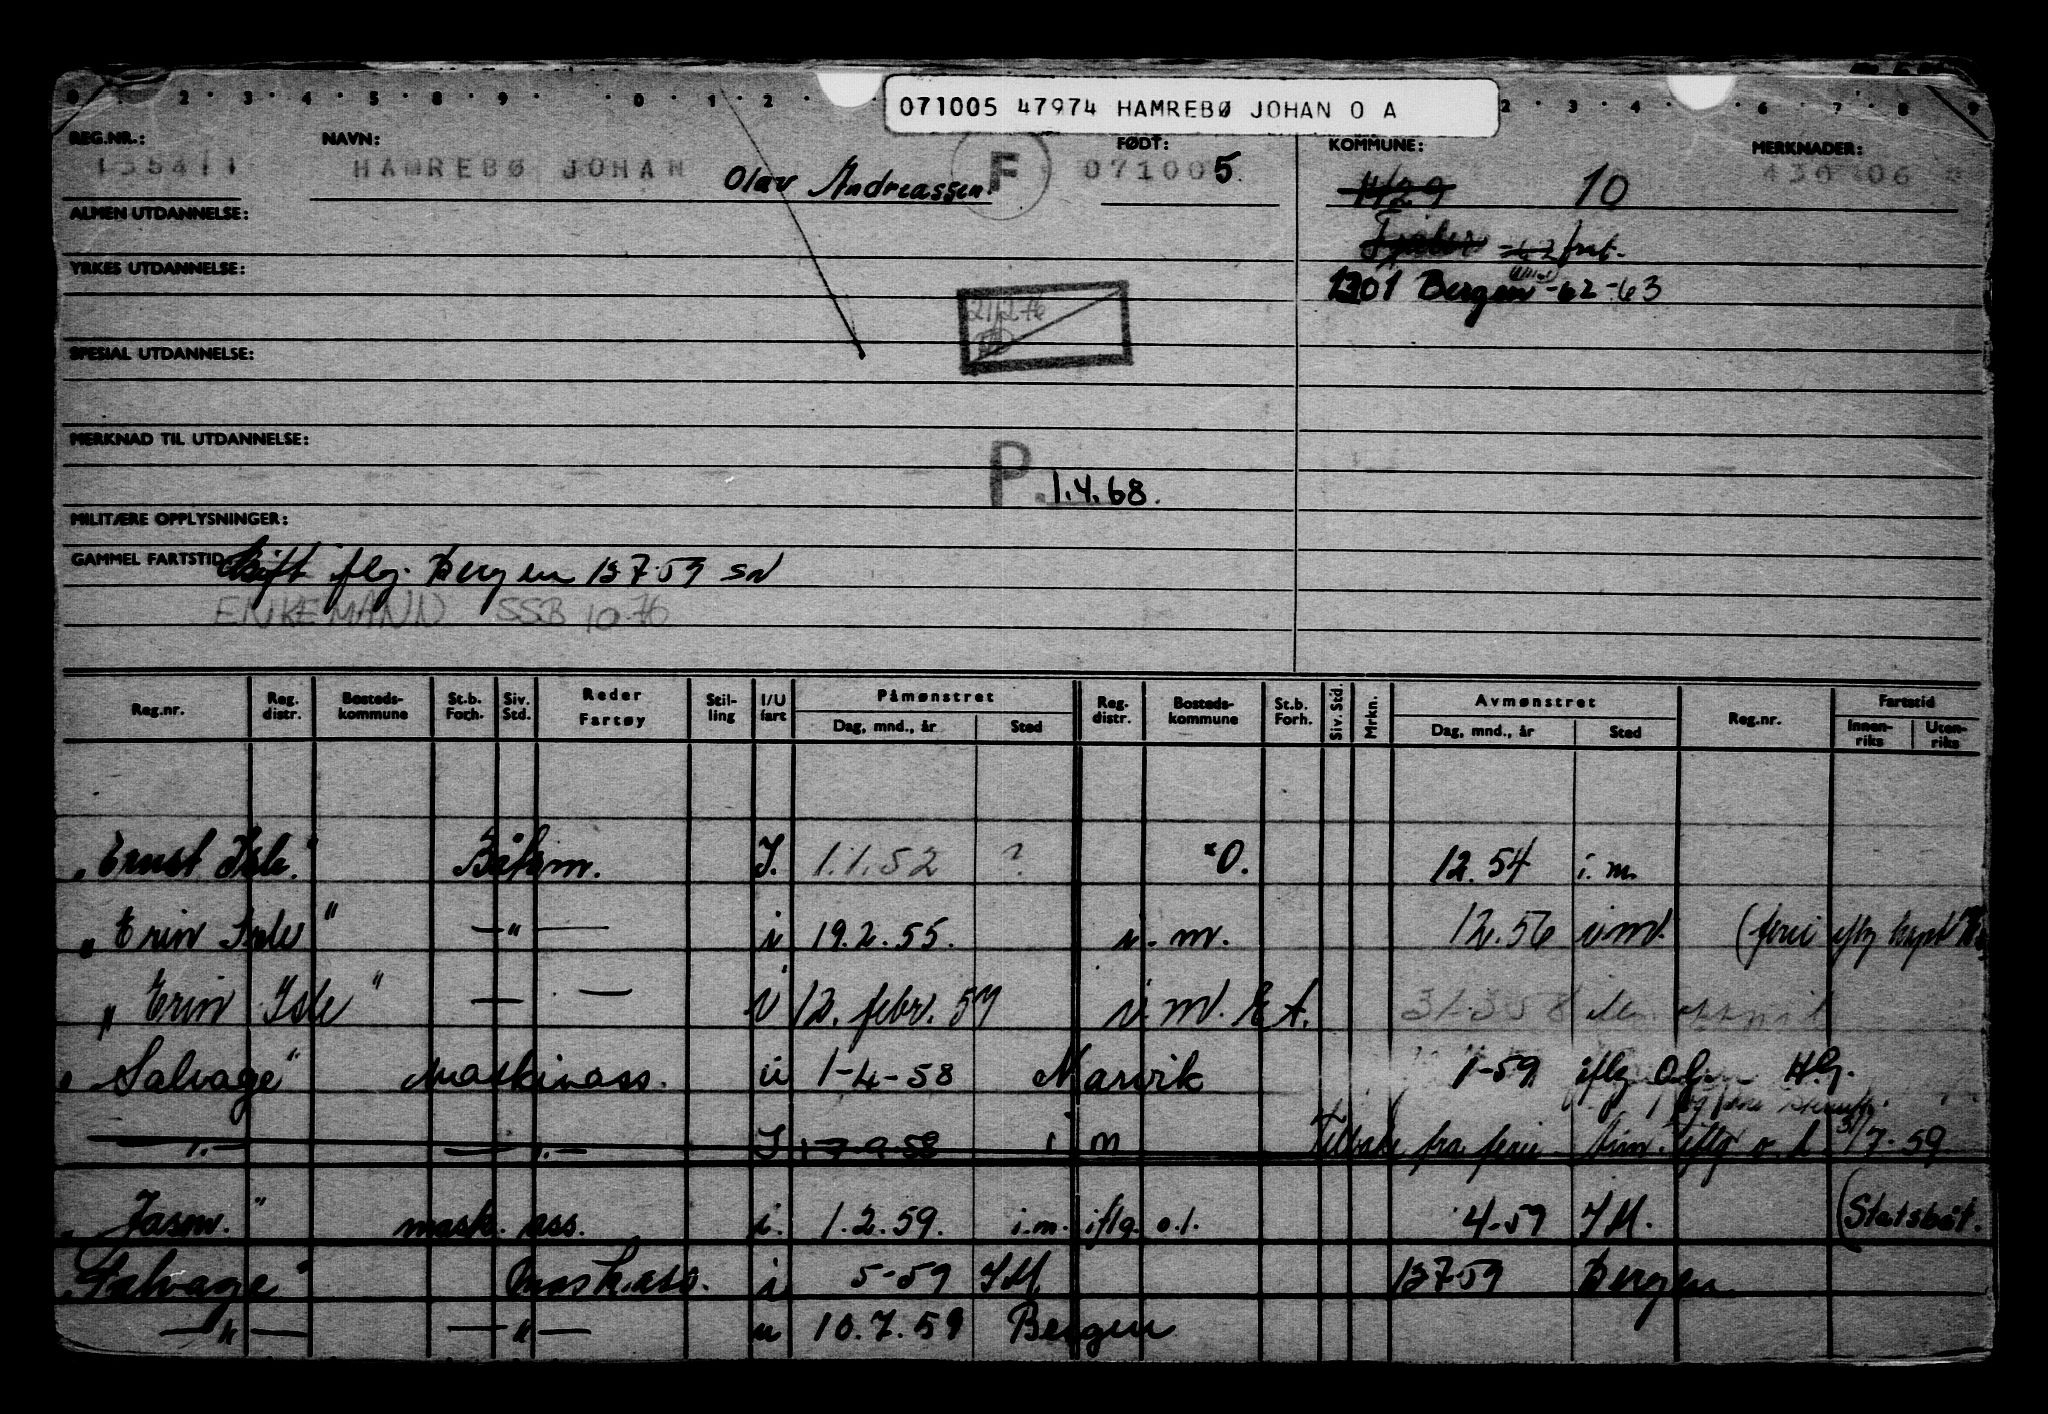 0 1 2 · 3 · 4 · 5 · 8 · 9 · · 0 · 1 · 2 · 2 · 3 · 4 · · 6 · 7 · 8 · 9
071005 47974 HAMREBØ JOHAN O A
REG.NR.: NAVN: FØDT: KOMMUNE: MERKNADER:
HAMREBØ JOHAN Olav Andreassen F 071005 10
ALMEN UTDANNELSE:
YRKES UTDANNELSE:
1301 Bergen -62-63
21/2-76
SPESIAL UTDANNELSE:
MERKNAD TIL UTDANNELSE:
P. 1.4.68.
MILITÆRE OPPLYSNINGER:
GAMMEL FARTSTID: Skift iflg. Bergen 13 7 59
ENKEMANN SSB 10-76
Reg.nr. Reg. distr. Bosteds-kommune St.b. Forh. Siv. Std. Reder Fartøy Stil-ling I/U fart Påmønstret Dag, mnd., år Sted Reg. distr. Bosteds-kommune St.b. Forh. Siv. Std. Mrkn. Avmønstret Dag, mnd., år Sted Reg.nr. Fartstid Innen-riks Uten-riks
„Ernst Isle." Båtsm. I. 1.1.52 ? *O. 12.54 i.m.
„Erin Isle" —"— i 19.2.55. i.m. 12.56 i.m. (ferie
„Erin Isle" — — i 12. febr. 57 i.m. E A. 31.3.58
„Salvage" Maskinass. u 1-4-58 Narvik 1-59 iflg. H.G.
—„— —„— I 58 i m Tilbake fra ferie iflg o.l. 31/7-59
„Jason." mask. ass. i. 1.2.59. i.m. iflg. o.l. 4-59 I M. (Statsbåt.
„Salvage" mask.ass. i 5-59 I M. 13 7 59 Bergen
—"— —"— u 10.7.59 Bergen